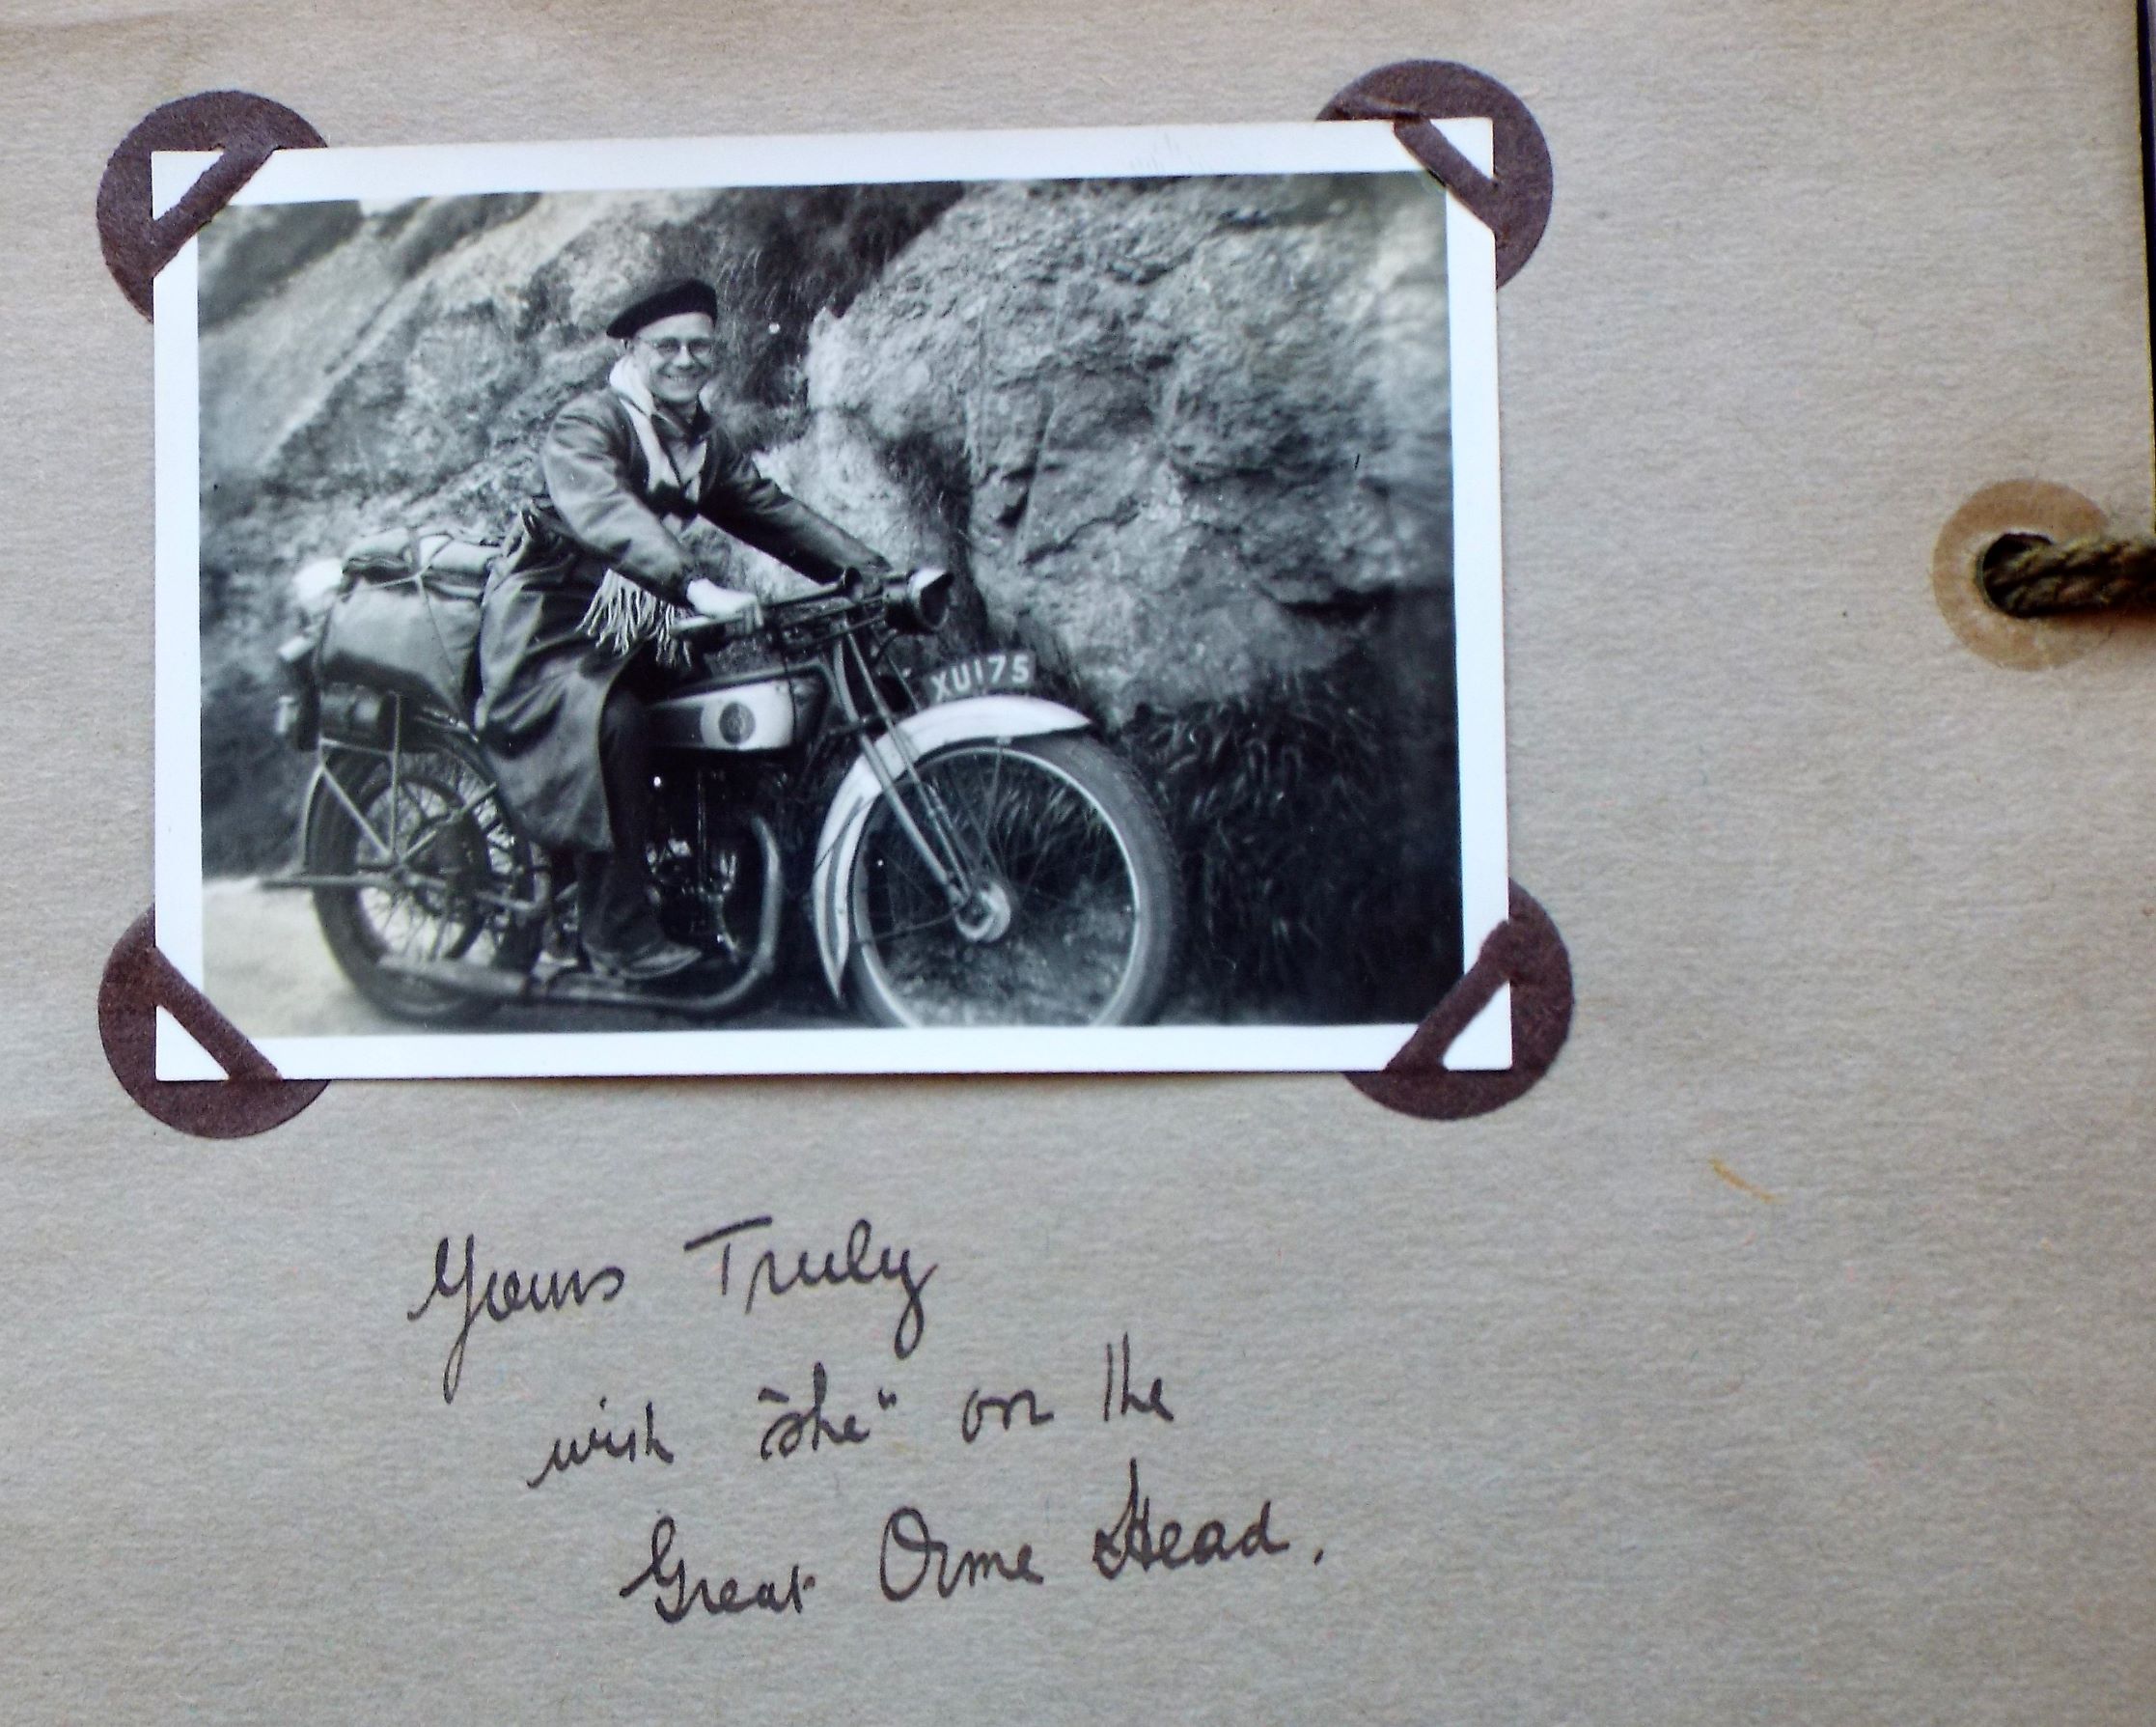 XU175
Yours Truly
with "she" on the
Great Orme Head.